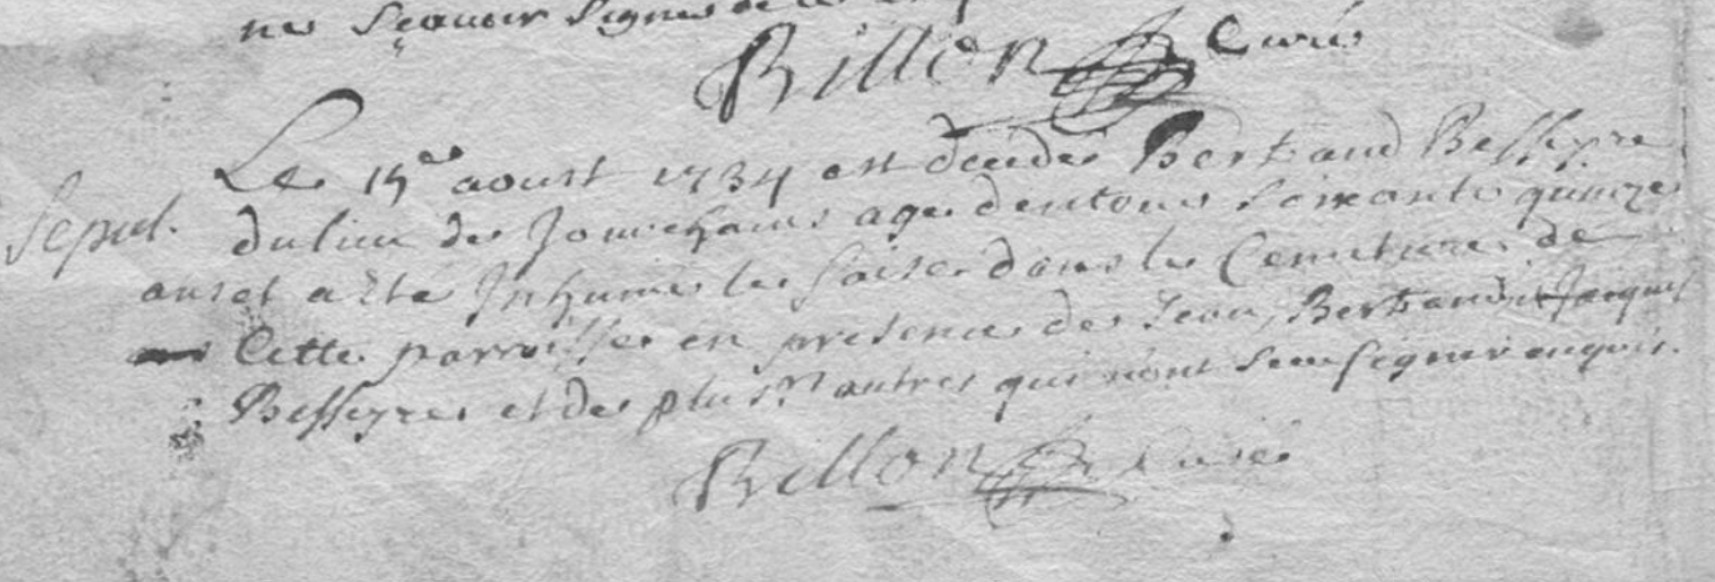 ne Sçavoir Signer de ce
Billon Curé
Sepul.
Le 15e aoust 1734 est decedé Bertrand Besseyre
du lieu de agé denviron Soixante quinze
ans et a Eté Inhumé le dans le Cemetiere de
Cette parroisse en presence de Jean, Bertrand, Jacques
Besseyre et de plusrs autres qui n'ont Sceu Signer enquis.
Billon Curé